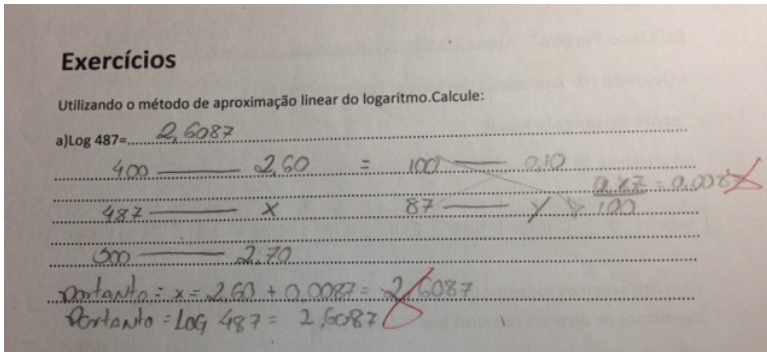 Exercícios
Utilizando o método de aproximação linear do logaritmo.Calcule:
a)Log 487= 2,6087
400 —— 2,60 = 100 —— 0,10
= 0,0087
487 —— X 87 —— y 100
500 —— 2,70
Portanto: x = 2,60 + 0,0087 = 2,6087
Portanto: LOG 487 = 2,6087